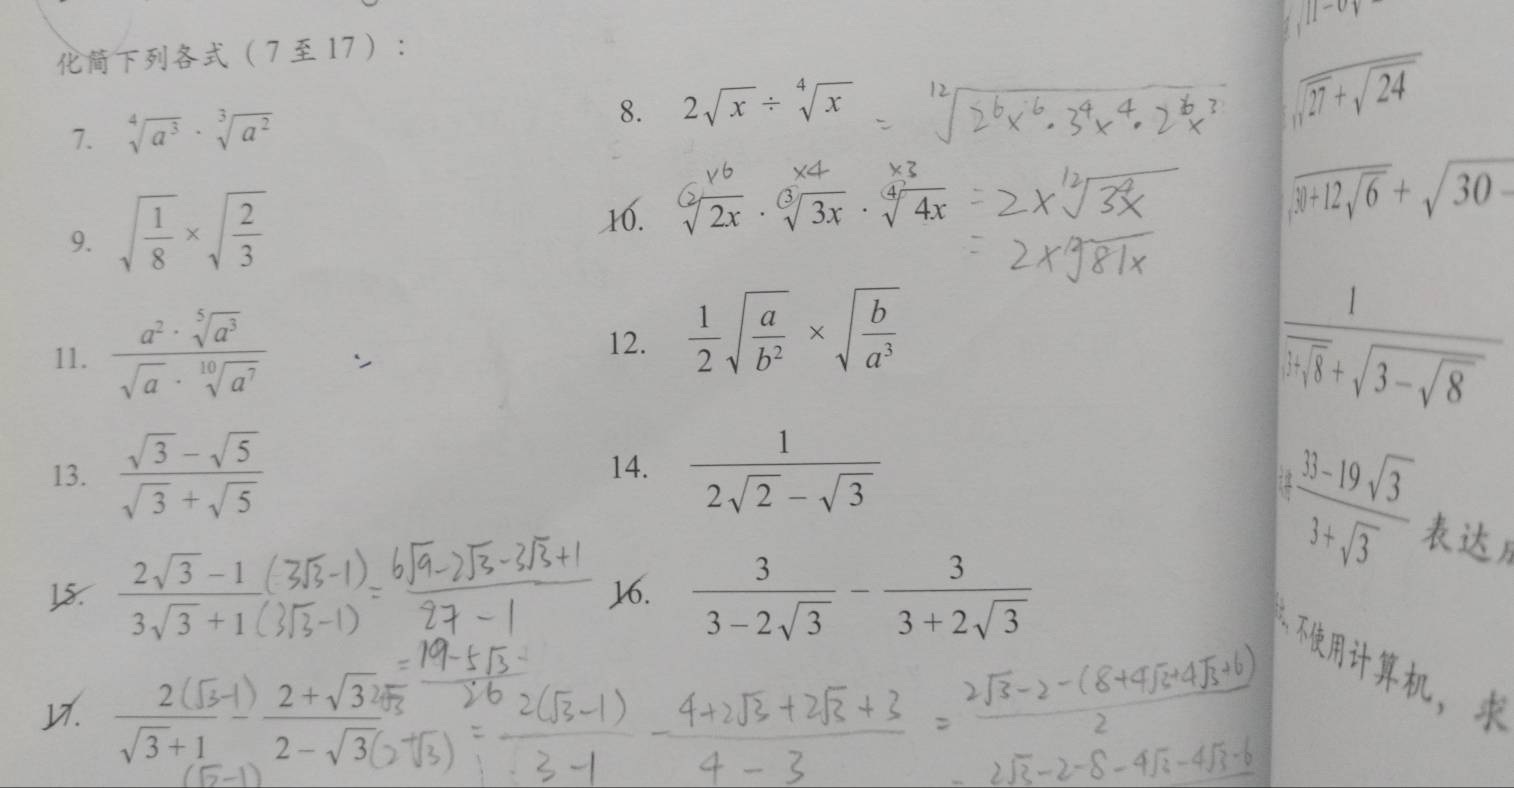 化简下列各式（7 至 17）：
7. \sqrt[4]{a^3} · \sqrt[3]{a^2}
8. 2\sqrt{x} ÷ \sqrt[4]{x}
9. \sqrt{\frac{1}{8}} × \sqrt{\frac{2}{3}}
×6 ×4 ×3
10. \sqrt[2]{2x} · \sqrt[3]{3x} · \sqrt[4]{4x}
= \sqrt[12]{2^6x^6·3^4x^4·2^6x^3}
= 2x\sqrt[12]{3^4x}
= 2x\sqrt[12]{81x}
11. \frac{a^2 · \sqrt[5]{a^3}}{\sqrt{a} · \sqrt[10]{a^7}}
12. \frac{1}{2}\sqrt{\frac{a}{b^2}} × \sqrt{\frac{b}{a^3}}
13. \frac{\sqrt{3}-\sqrt{5}}{\sqrt{3}+\sqrt{5}}
14. \frac{1}{2\sqrt{2}-\sqrt{3}}
15. \frac{2\sqrt{3}-1(3\sqrt{3}-1)}{3\sqrt{3}+1(3\sqrt{3}-1)} = \frac{6\sqrt{9}-2\sqrt{3}-3\sqrt{3}+1}{27-1}
= \frac{19-5\sqrt{3}}{26}
16. \frac{3}{3-2\sqrt{3}} - \frac{3}{3+2\sqrt{3}}
17. \frac{2(\sqrt{3}-1)}{\sqrt{3}+1(\sqrt{3}-1)} - \frac{2+\sqrt{3}}{2-\sqrt{3}(2+\sqrt{3})} = \frac{2(\sqrt{3}-1)}{3-1} - \frac{4+2\sqrt{3}+2\sqrt{3}+3}{4-3} = \frac{2\sqrt{3}-2-(8+4\sqrt{3}+4\sqrt{3}+6)}{2}
2\sqrt{3}-2-8-4\sqrt{3}-4\sqrt{3}-6
\sqrt{\sqrt{27}+\sqrt{24}}
\sqrt{30+12\sqrt{6}} + \sqrt{30-
\frac{1}{\sqrt{3+\sqrt{8}}+\sqrt{3-\sqrt{8}}}
\frac{33-19\sqrt{3}}{3+\sqrt{3}} 表达
不使用计算机，求